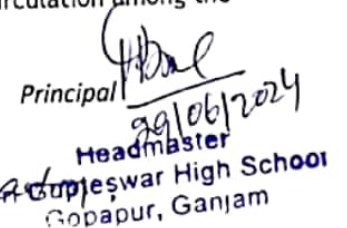 rculation among the
Principal
29/06/2024
Headmaster
Gupteswar High School
Gopapur, Ganjam